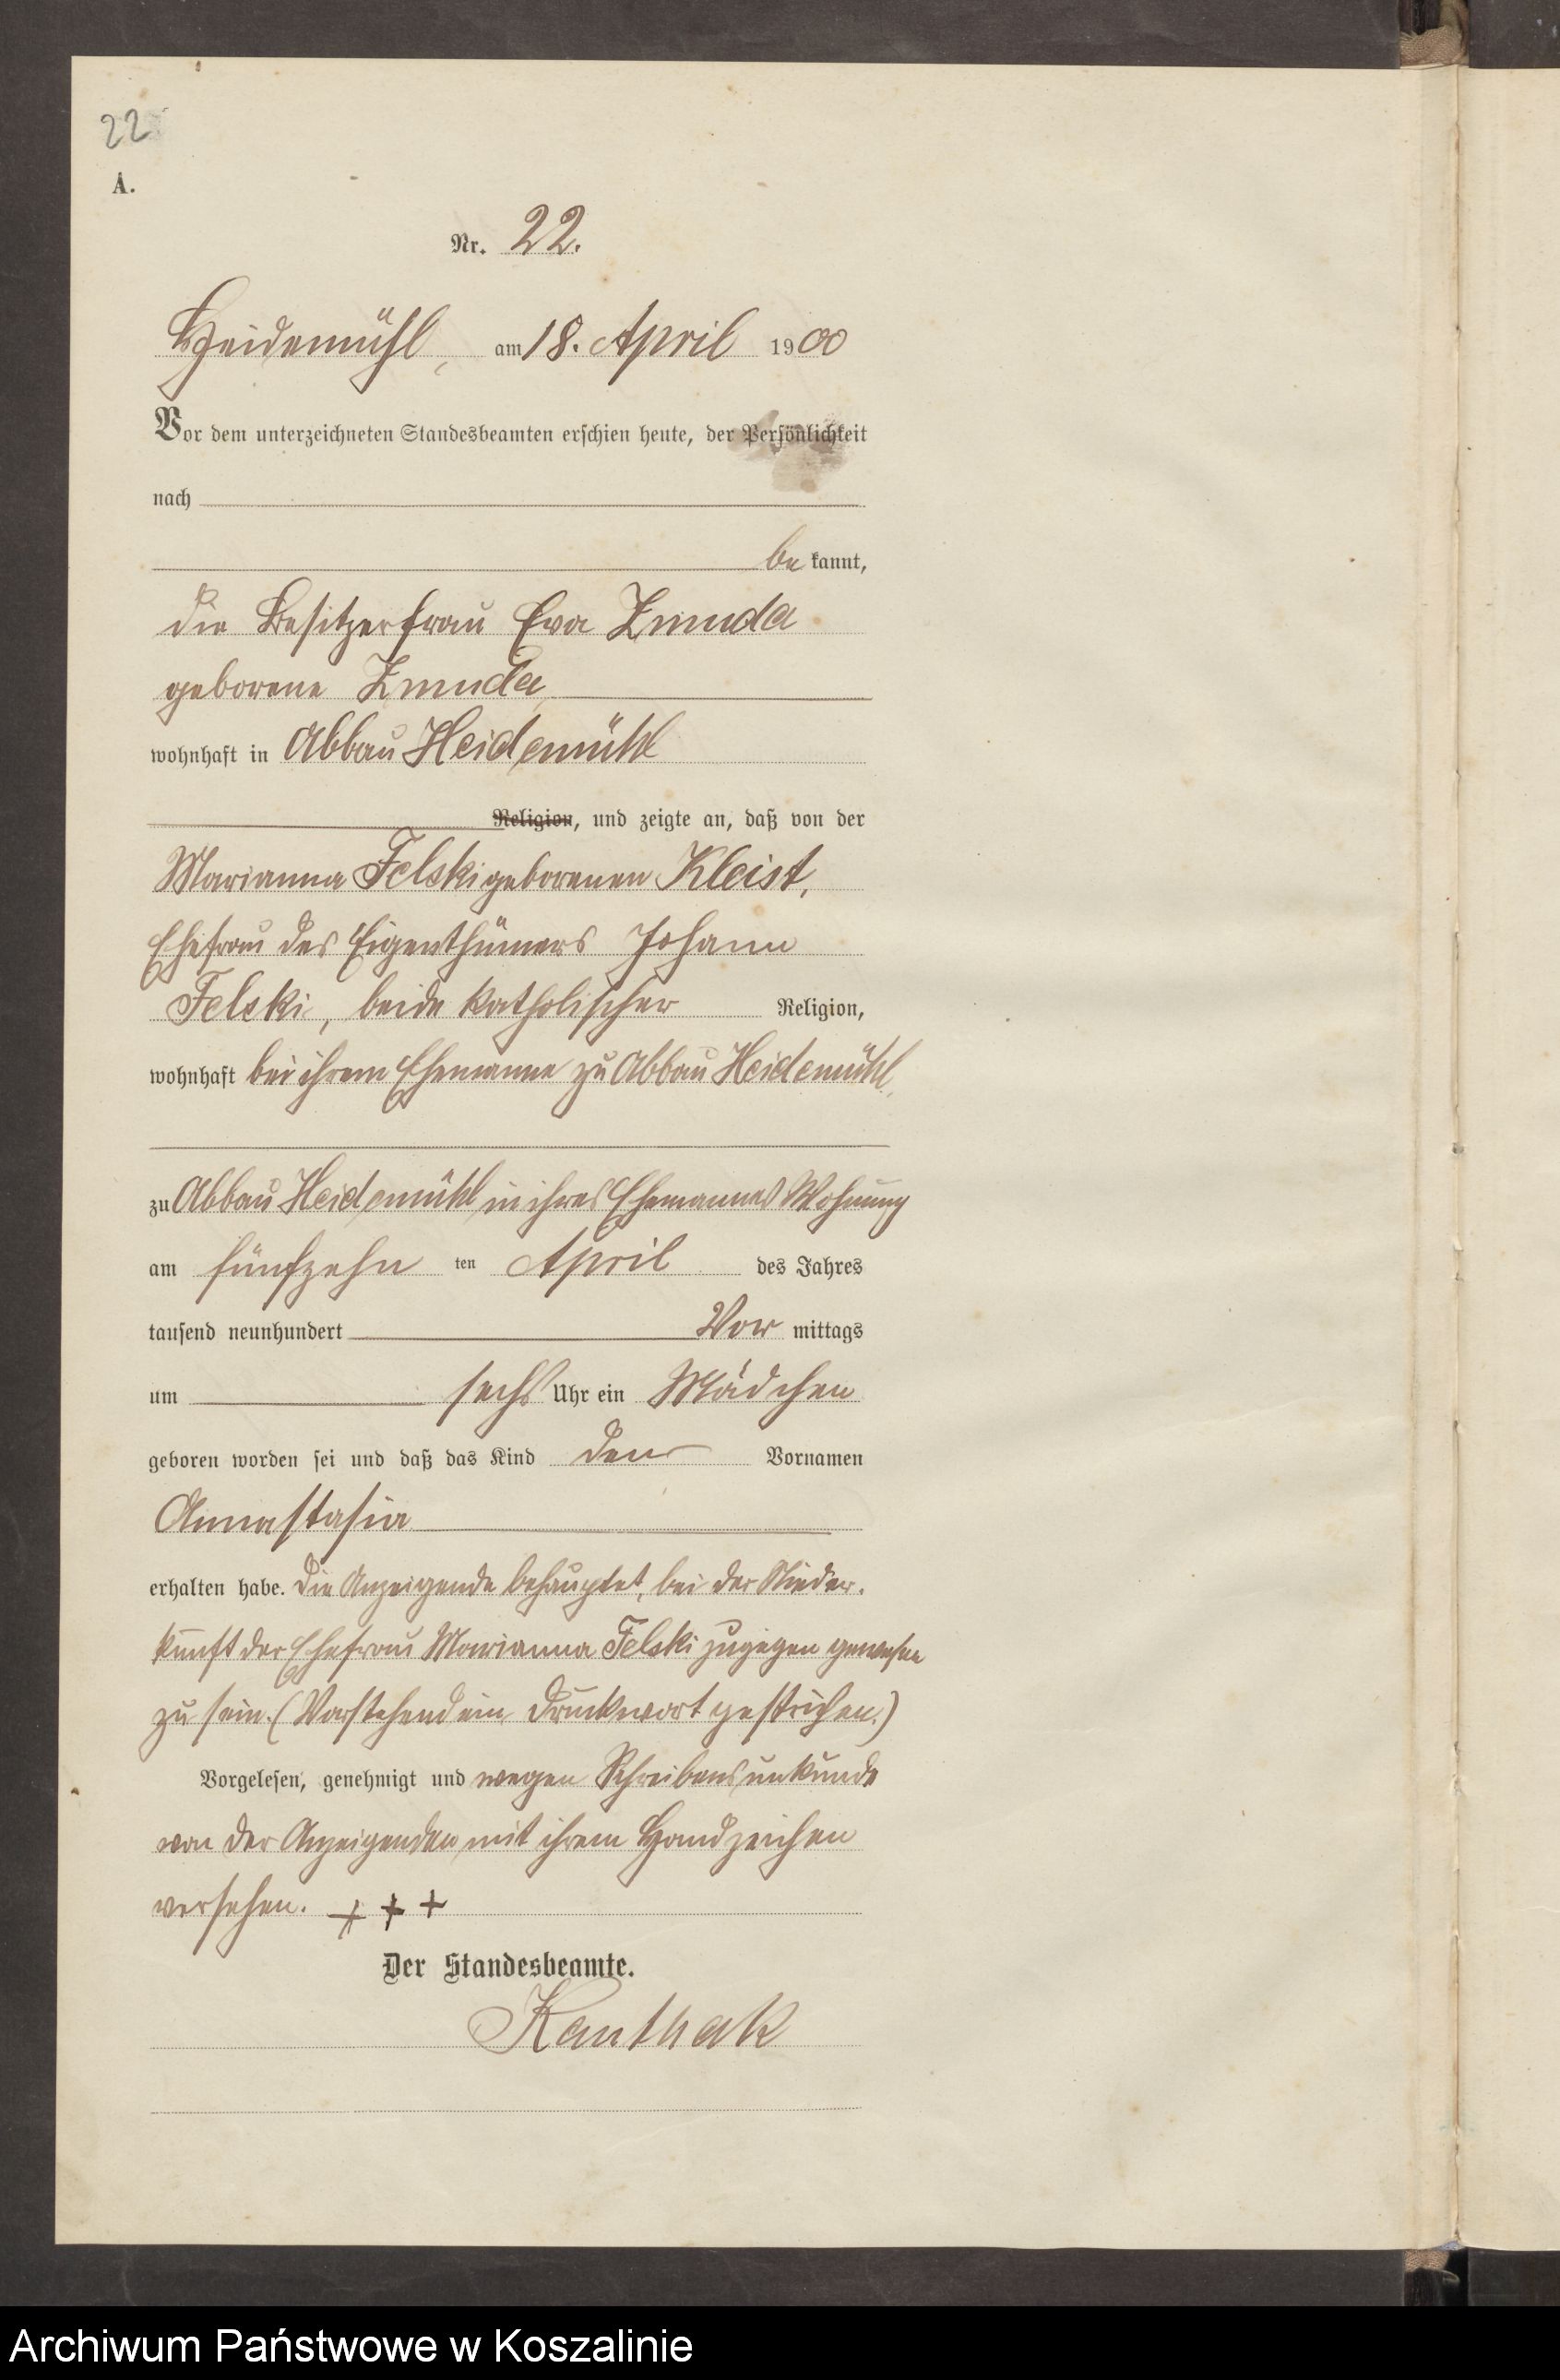 22
A.
Nr. 22.
Heidemühl, am 18. April 1900
Vor dem unterzeichneten Standesbeamten erschien heute, der Persönlichkeit
nach
be kannt,
die Besitzerfrau Eva Zmuda
geborene Zmuda
wohnhaft in Abbau Heidemühl
Religion, und zeigte an, daß von der
Marianna Felski geborenen Kleist,
Ehefrau des Eigenthümers Johann
Felski, beide katholischer Religion,
wohnhaft bei ihrem Ehemanne zu Abbau Heidemühl,
zu Abbau Heidemühl in ihres Ehemannes Wohnung
am fünfzehn ten April des Jahres
tausend neunhundert Vor mittags
um sechs Uhr ein Mädchen
geboren worden sei und daß das Kind den Vornamen
Annastasia
erhalten habe. Die Anzeigende behauptet, bei der Nieder-
kunft der Ehefrau Marianna Felski zugegen gewesen
zu sein. (Vorstehend ein Druckwort gestrichen.)
Vorgelesen, genehmigt und wegen Schreibensunkunde
von der Anzeigenden mit ihrem Handzeichen
versehen. + + +
Der Standesbeamte.
Kanthak
Archiwum Państwowe w Koszalinie